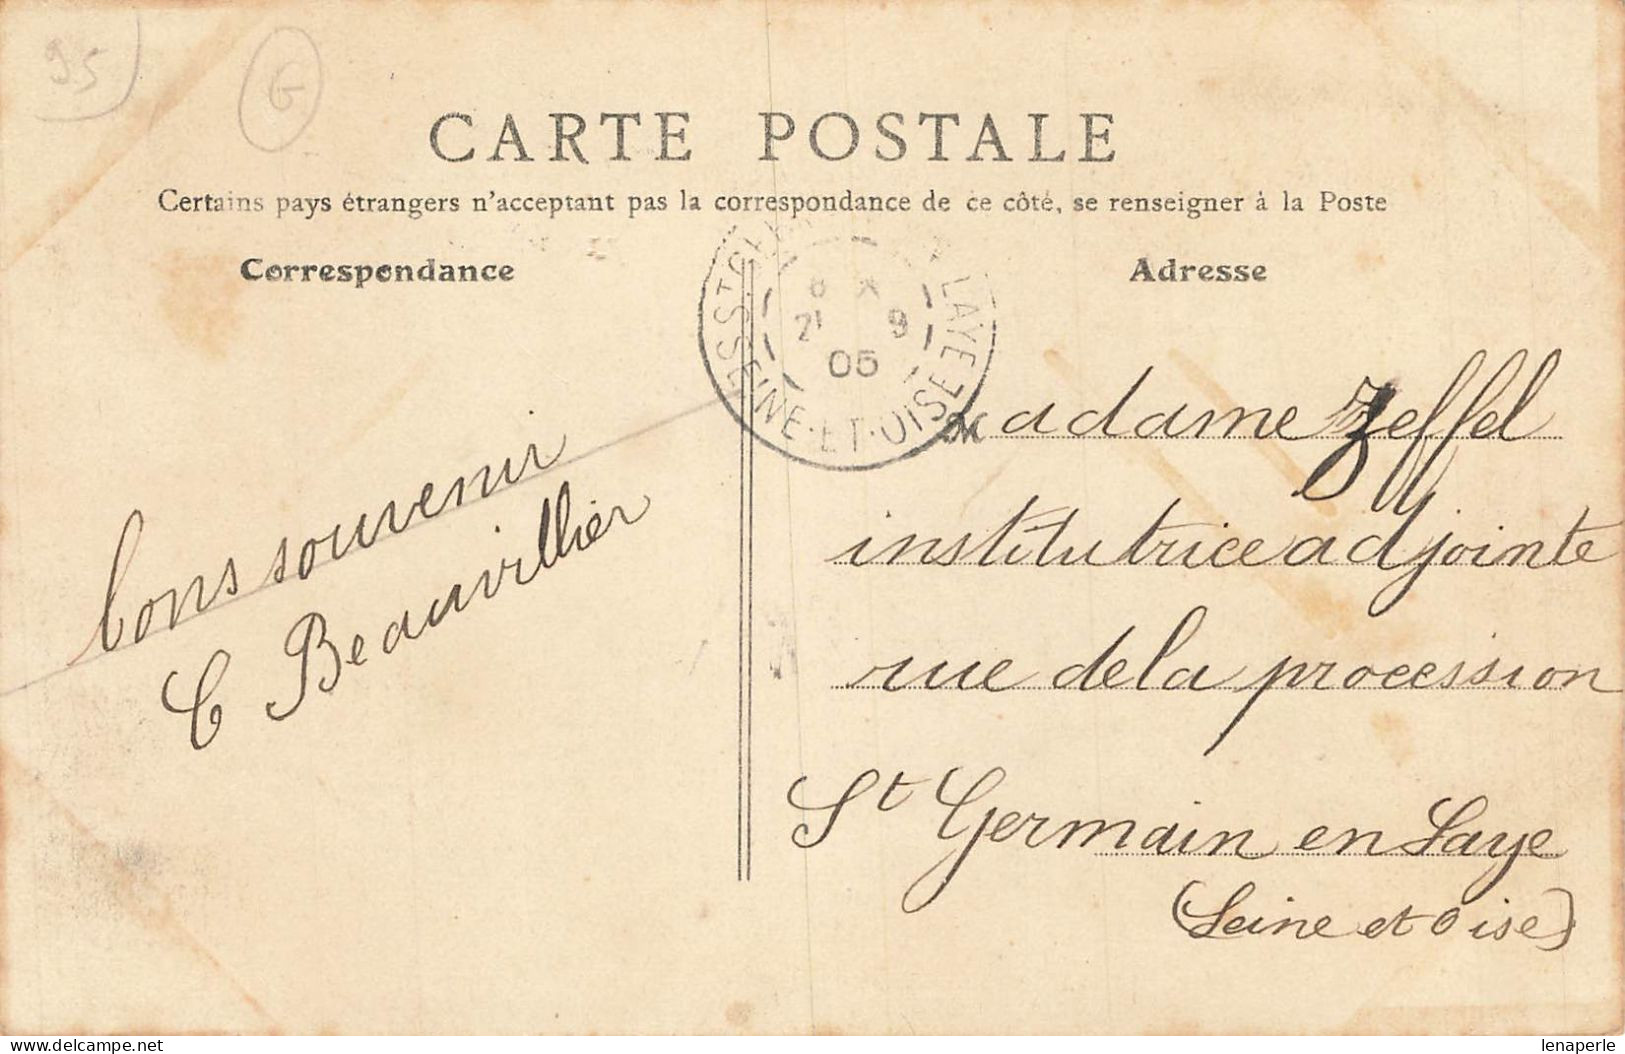 95
G
CARTE POSTALE
Certains pays étrangers n'acceptant pas la correspondance de ce côté, se renseigner à la Poste
Correspondance
Adresse
LAYE
21 9
05
SEINE-ET-OISE
bons souvenir
C Beauvillier
Madame Zeffel
institutrice adjointe
rue de la procession
St Germain en Laye
(Seine et Oise)
www.delcampe.net
lenaperle